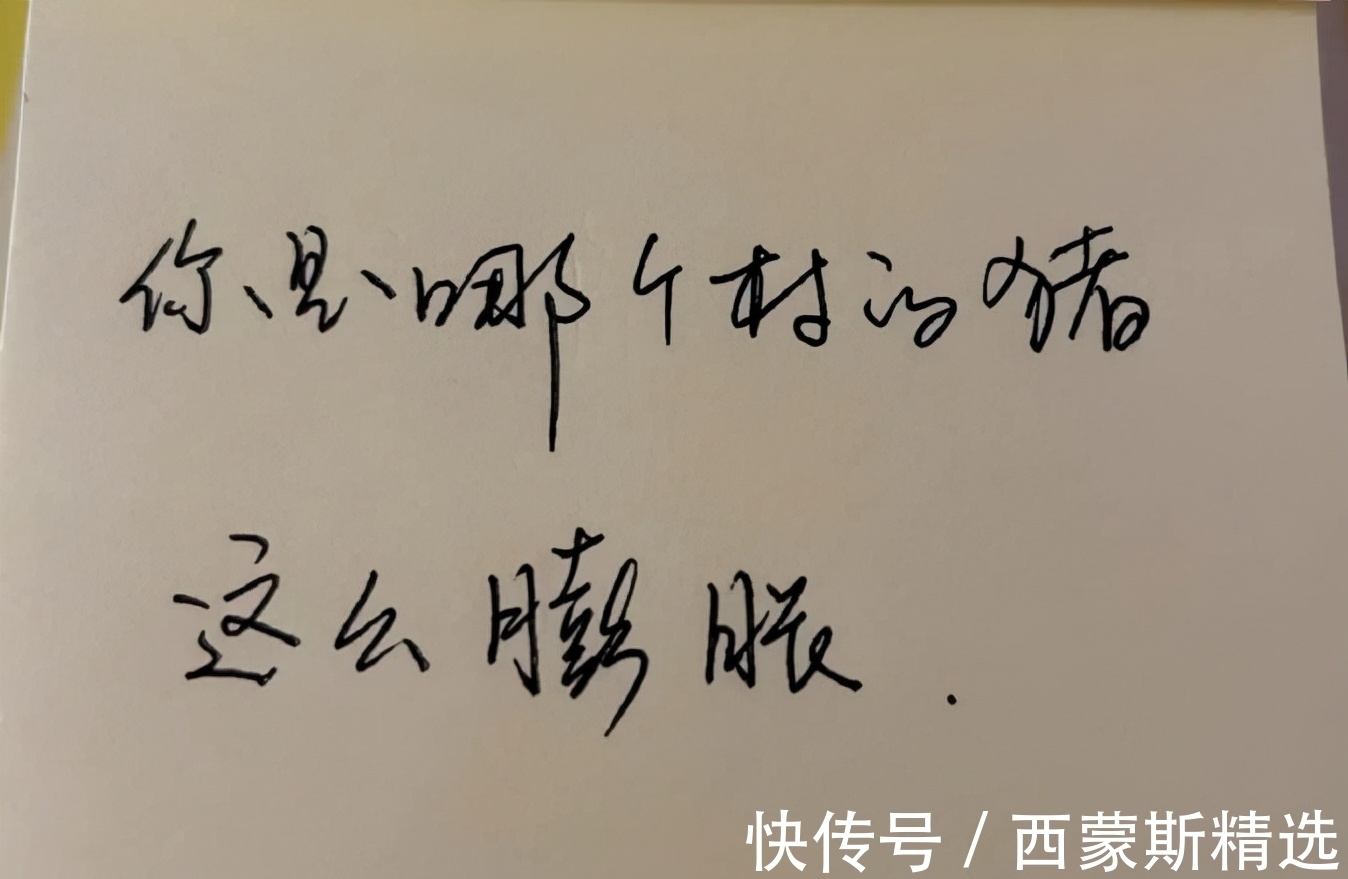 你是哪个村的猪
这么膨胀.
快传号 / 西蒙斯精选